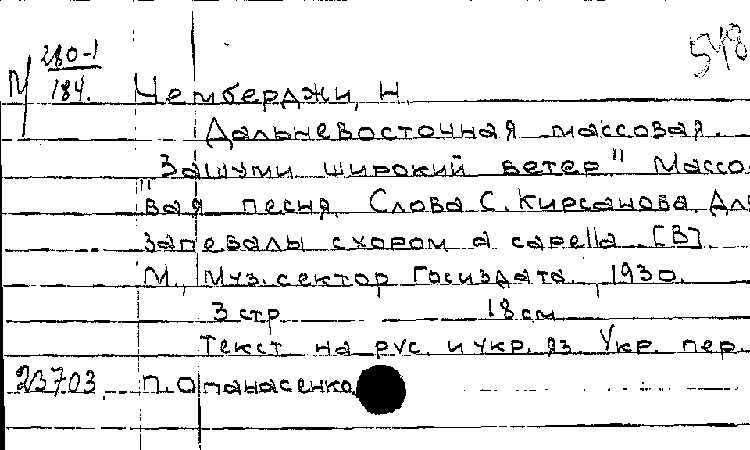 548
М 280-1
184.
Чемберджи, Н.
Дальневосточная массовая.
"Зашуми широкий ветер" Массо-
вая песня. Слова С. Кирсанова. Для
запевалы с хором a capella. [В].
М., Муз. сектор Госиздата, 1930.
3 стр 18 см
Текст на рус. и укр. яз Укр. пер.
23703. П. Опанасенко